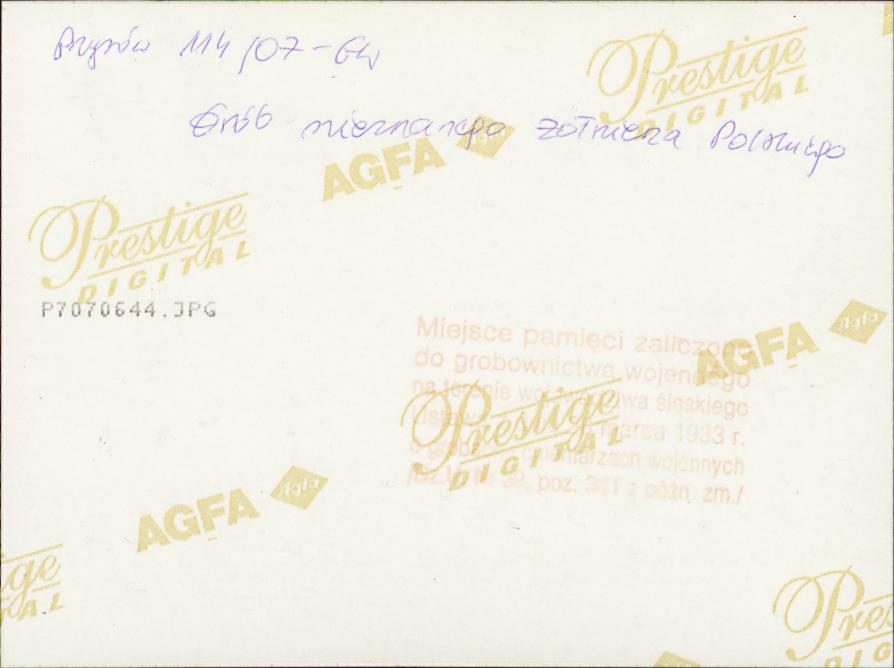 Przyrów 114/07-GW
Grób nieznanego Żołnierza Polskiego
Prestige
DIGITAL
AGFA Agfa
Prestige
DIGITAL
P7070644.JPG
Miejsce pamięci zaliczone
do grobownictwa wojennego
na terenie województwa śląskiego
Ustawa marca 1933 r.
o grobach i cmentarzach wojennych
/Dz.U. Nr 39, poz. 311 z późn. zm./
AGFA Agfa
Prestige
DIGITAL
AGFA Agfa
ge
AL
Pres
DIG